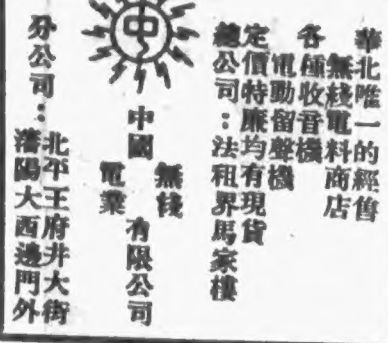 華北唯一的經售
無綫電料商店
各種收音機
電動留聲機
定價特廉均有現貨
總公司：法租界馬家樓
中
中國無綫電業有限公司
分公司：北平王府井大街
瀋陽大西邊門外